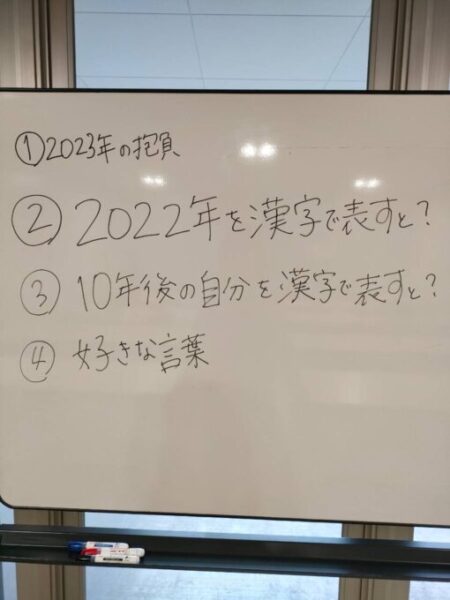 ①2023年の抱負
②2022年を漢字で表すと？
③10年後の自分を漢字で表すと？
④好きな言葉